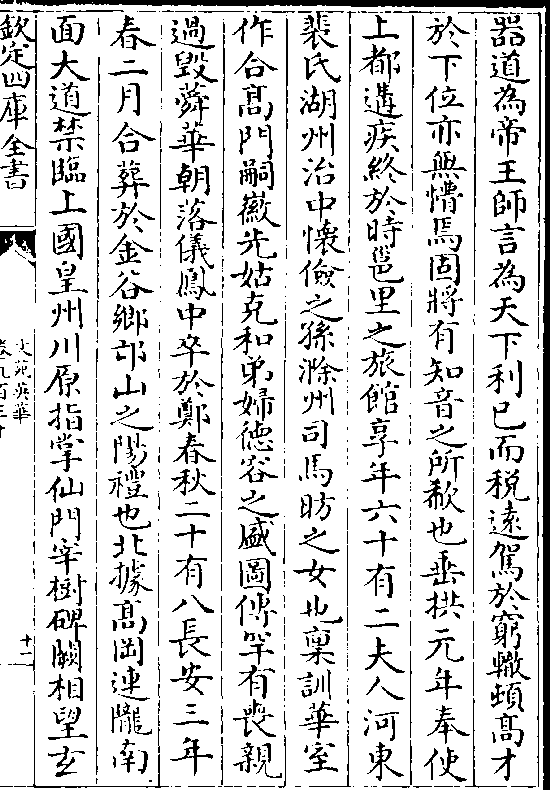 器道為帝王師言為天下利已而税遠駕於窮轍頓髙才
於下位亦無懵焉固將有知音之所歎也垂拱元年奉使
上都遘疾終於時邕里之旅館享年六十有二夫人河東
裴氏湖州治中懐儉之孫滁州司馬昉之女也稟訓華室
作合髙門嗣徽先姑克和弟婦徳容之盛圖傳罕有喪親
過毁蕣華朝落儀鳳中卒於鄭春秋二十有八長安三年
春二月合葬於金谷鄉邙山之陽禮也北據髙岡連隴南
面大道禁臨上國皇州川原指掌仙門宰樹碑闕相望玄
欽定四庫全書
文苑英華
十二